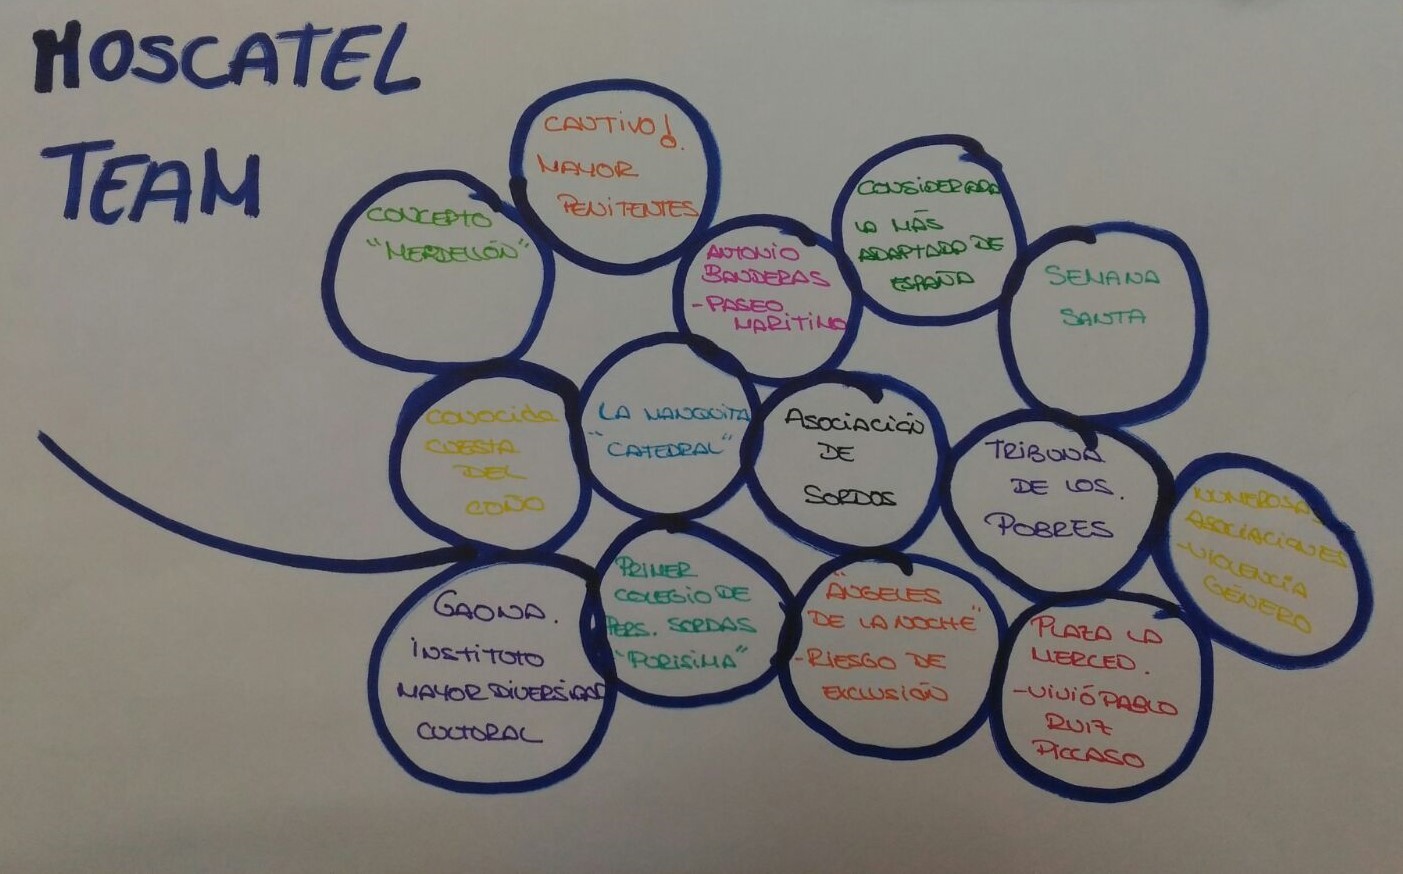 MOSCATEL
TEAM
CAUTIVO!
MAYOR
PENITENTES
CONCEPTO
"MERDELLÓN"
ANTONIO
BANDERAS
-PASEO
MARITIMO
CONSIDERADA
LA MÁS
ADAPTADO DE
ESPAÑA
SEMANA
SANTA
CONOCIDA
CUESTA
DEL
COÑO
LA MANQUITA
"CATEDRAL"
ASOCIACIÓN
DE
SORDOS
TRIBUNA
DE LOS.
POBRES
NUMEROSAS
ASOCIACIONES
-VIOLENCIA
GÉNERO
GAONA.
INSTITUTO
MAYOR DIVERSIDAD
CULTURAL
PRIMER
COLEGIO DE
PERS. SORDAS
"PURISIMA"
"ÁNGELES
DE LA NOCHE"
-RIESGO DE
EXCLUSIÓN
PLAZA LA
MERCED.
-VIVIÓ PABLO
RUIZ
PICCASO